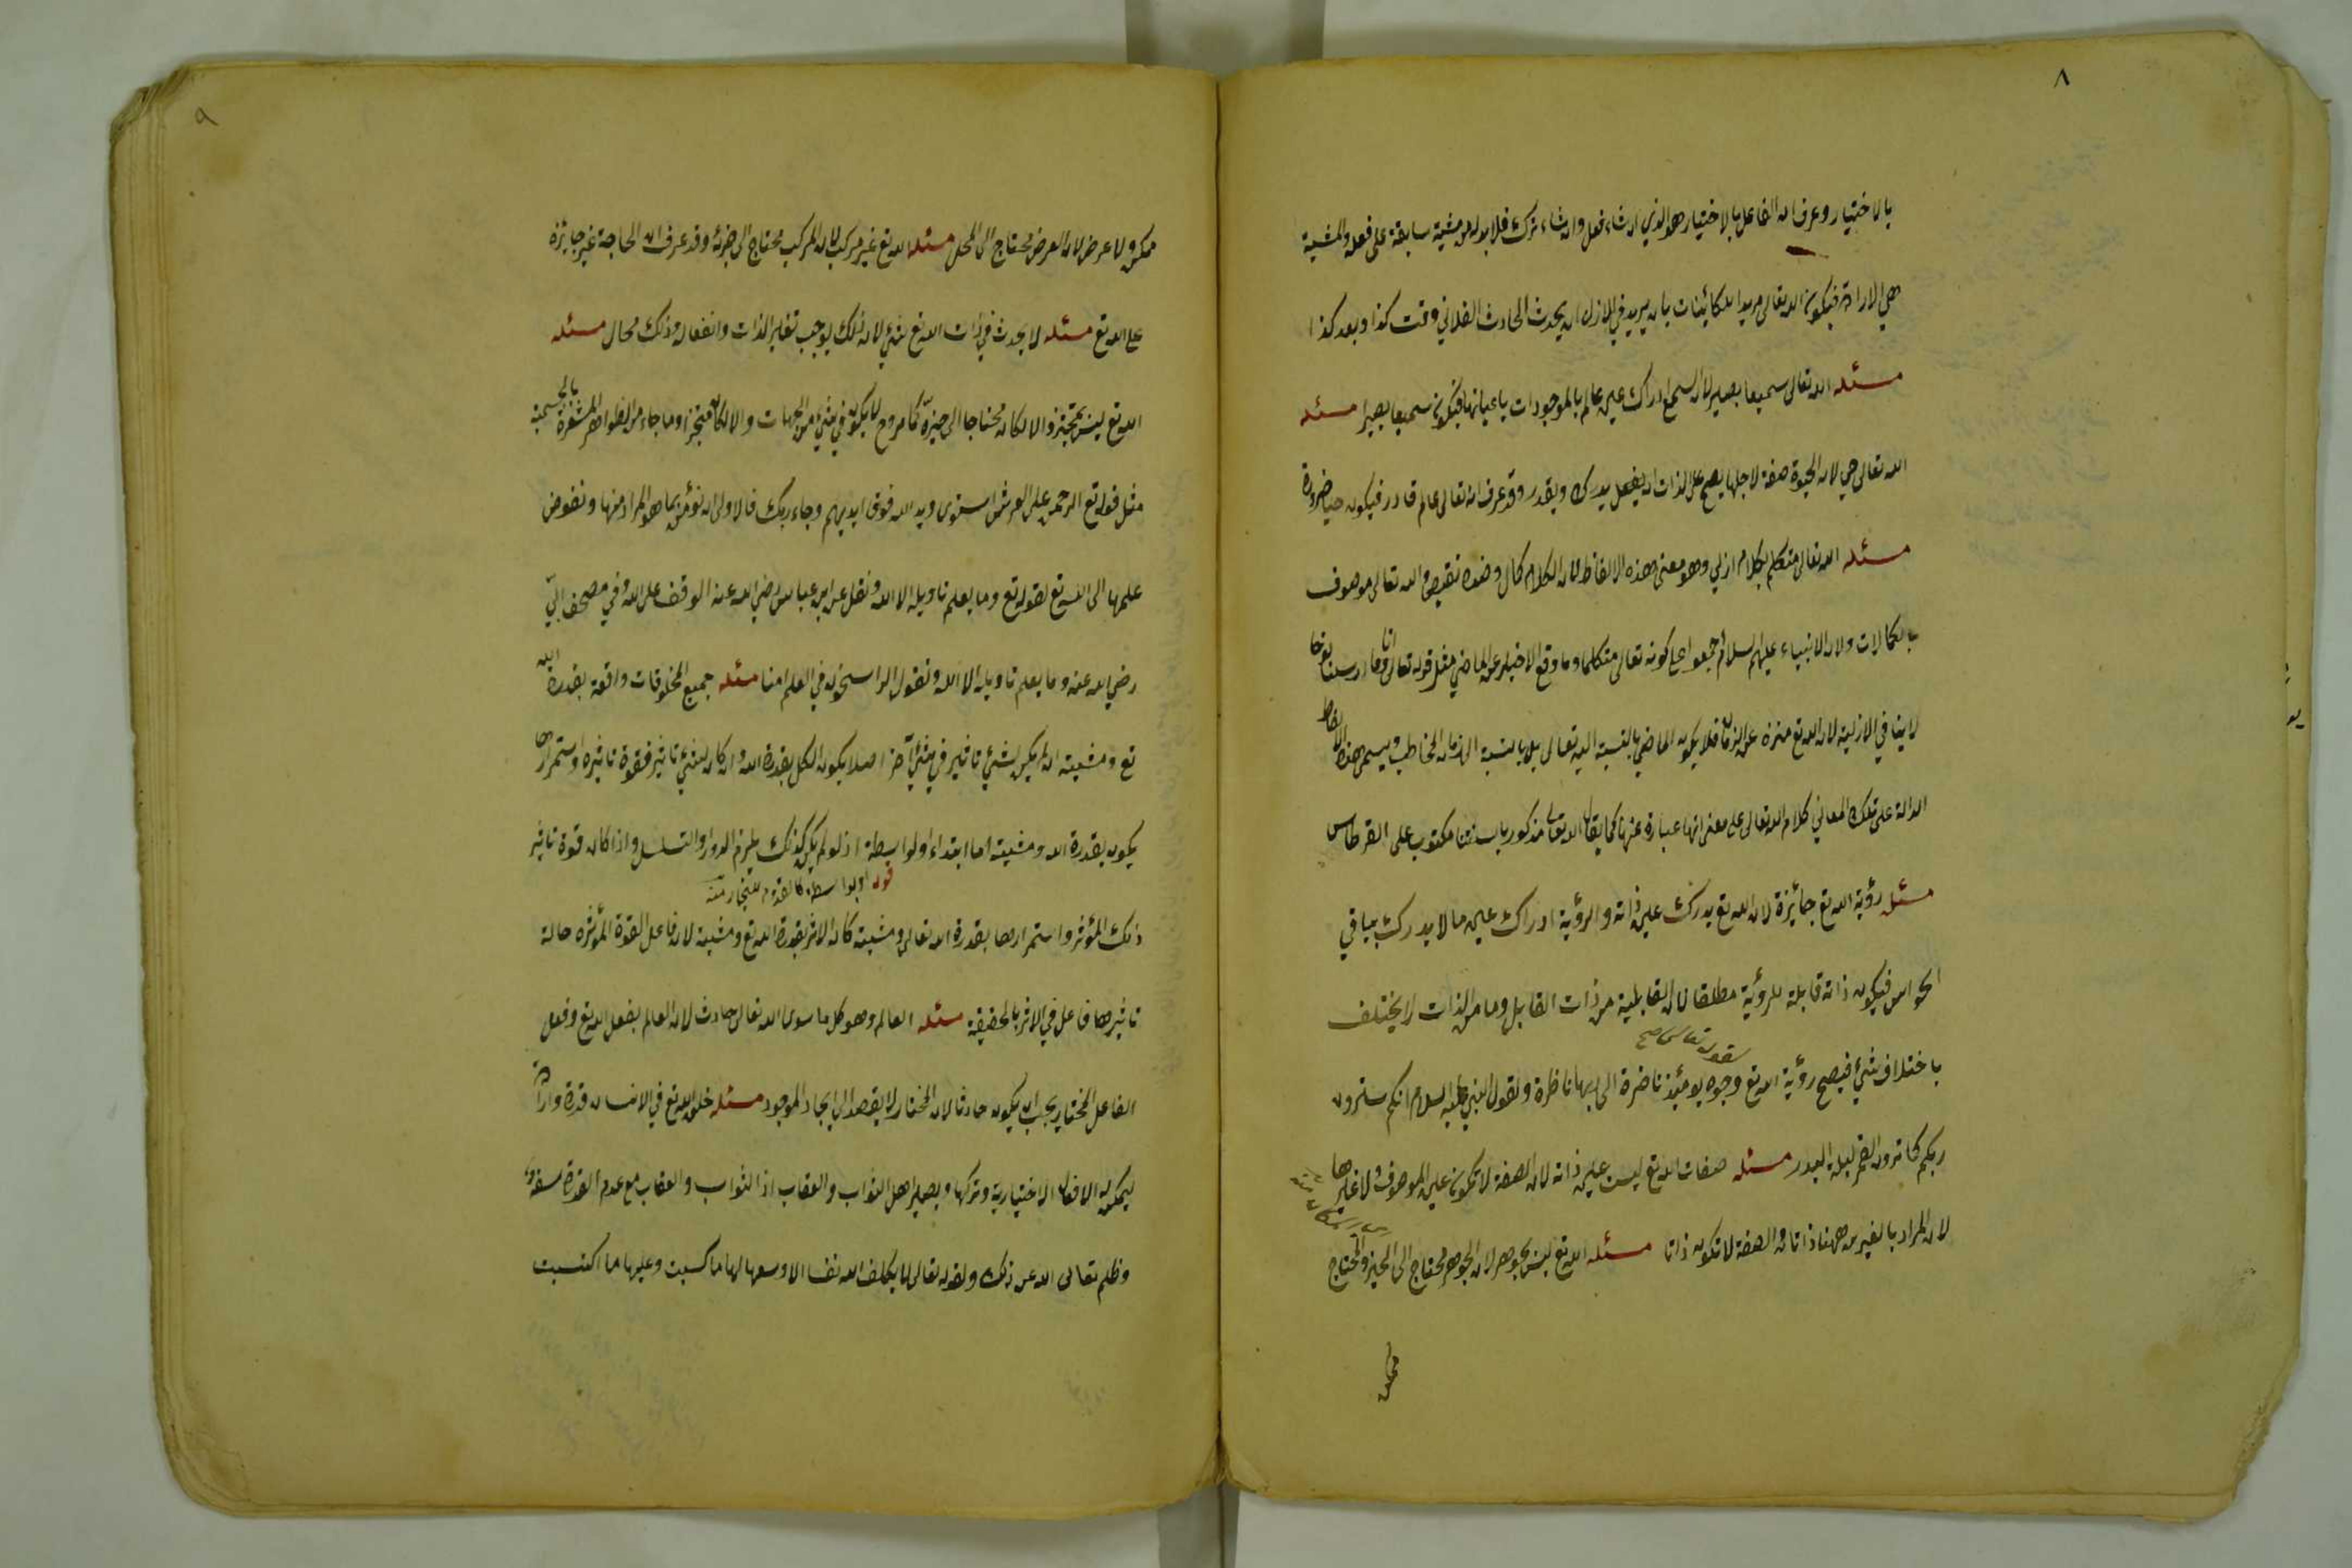 ٨
بالاختيار وعرف ان الفاعل بالاختيار هو الذي ان شاء فعل وان شاء ترك فلا بد له من مشية سابقة على فعله والمشية
هي الارادة فيكون الله تعالى مريدا للكائينات بان يريد في الازل ان يحدث الحادث الفلاني وقت كذا وبعد كذا
مسئله الله تعالى سميعا بصيرا لان السمع ادراك عين عالم بالموجودات باعيانها فيكون سميعا بصيرا مسئله
الله تعالى حي لان الحيوة صفة لاجلها يصح على الذات ان يفعل يدرك ويقدر وقد عرف انه تعالى عالم قادر فيكون حيا ضرورة
مسئله الله تعالى متكلم بكلام ازلي وهو معنى هذه الالفاظ لان الكلام كمال وضده نقيص والله تعالى موصوف
بالكمالات ولان الانبياء عليهم السلام اجمعوا على كونه تعالى متكلما وما وقع الاخبار عن الماضي مثل قوله تعالى انا وما ارسلنا نوحا
لاينافي الازلية لان الله تع منزه عن الزمان فلا يكون الماضي بالنسبة اليه تعالى بل بالنسبة الى زمان المخاطب ويسمى هذه الالفاظ
الدالة على تلك المعاني كلام الله تعالى على معنى انها عبارة عنها كما يقال الله تعالى مذكور بالسنتنا مكتوب على القرطاس
مسئله رؤية الله تع جائزة لان الله تع يدرك عين ذاته والرؤية ادراك عين ما لا يدرك بباقي
الحواس فيكون ذاته قابلة للرؤية مطلقا لان القابلية من ذات القابل وما من الذات لا يختلف
لقوله تعالى صح
باختلاف شئ فيصح رؤية الله تع وجوه يومئذ ناضرة الى ربها ناظرة ولقول النبي عليه السلام انكم سترون
ربكم كما ترون القمر ليلة البدر مسئله صفات الله تع ليست عين ذاته لان الصفة لا تكون عين الموصوف ولا غيرها
لان المراد بالغير من ههنا ذاتان والصفة لا تكون ذاتا مسئله الله تع ليس بجوهر لان الجوهر محتاج الى الحيز والمحتاج
ممكن
٩
ممكن ولا عرض لان العرض محتاج الى المحل مسئله الله تع غير مركب لان المركب محتاج الى جزئه وقد عرف ان الحاجة غير جائزة
على الله تع مسئله لا يحدث في ذات الله تع شئ لان ذلك يوجب تغاير الذات وانفعاله وذلك محال مسئله
الله تع ليس بمتحيز والا لكان محتاجا الى حيزه كما مر وح لا يكون في شئ من الجهات والا لكان متحيزا وما جاء من الظواهر المشعرة بالجسمية
مثل قوله تع الرحمن على العرش استوى ويد الله فوق ايديهم وجاء ربك فالاولى ان نؤمن بما هو المراد منها ونفوض
علمها الى الله تع لقوله تع وما يعلم تاويله الا الله ونقل عن ابن عباس رضي الله عنه الوقف على الله وفي مصحف ابيّ
رضي الله عنه وما يعلم تاويله الا الله ونقول الراسخون في العلم امنا مسئله جميع المخلوقات واقعة بقدرة الله
تع ومشيته ان لم يكن لشئ تاثير في شئ آخر اصلا يكون الكل بقدرة الله وان كان لشئ تاثير فقوة تاثيره واستمرارها
يكون بقدرة الله ومشيته اما ابتداء او بواسطة اذ لو لم يكن كذلك يلزم الدور او التسلسل واذا كان قوة تاثير
قوله او بواسطة كالقدوم للنجار منه
ذلك المؤثر واستمرارها بقدرة الله تعالى ومشيته كان الاثر بقدرة الله تع ومشيته لان فاعل القوة المؤثره حالة
تاثيرها فاعل في الاثر بالحقيقة مسئله العالم وهو كل ما سوى الله تعالى حادث لان العالم بفعل الله تع وفعل
الفاعل المختار يجب ان يكون حادثا لان المختار لا يقصد الى ايجاد الموجود مسئله خلق الله تع في الانسان قدرة وارادة
ليمكن به الافعال الاختيارية وتركها ويصير اهل الثواب والعقاب اذ الثواب والعقاب مع عدم القدرة سفه
وظلم تعالى الله عن ذلك ولقوله تعالى لا يكلف الله نفسا الا وسعها لها ما كسبت وعليها ما اكتسبت